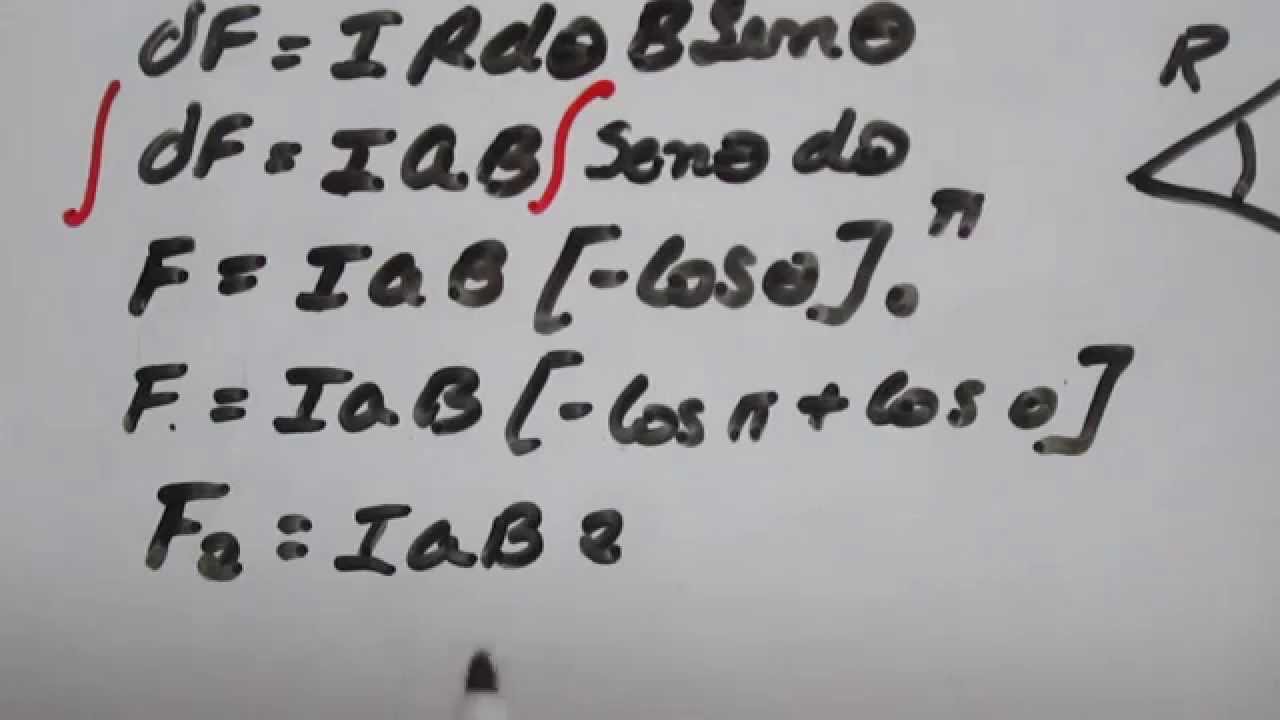 dF = I R dθ B Sen θ
R
∫ dF = I a B ∫ Sen θ dθ
F = I a B [- Cos θ]₀^π
F. = I a B [- Cos π + Cos 0]
F₂ = I a B 2